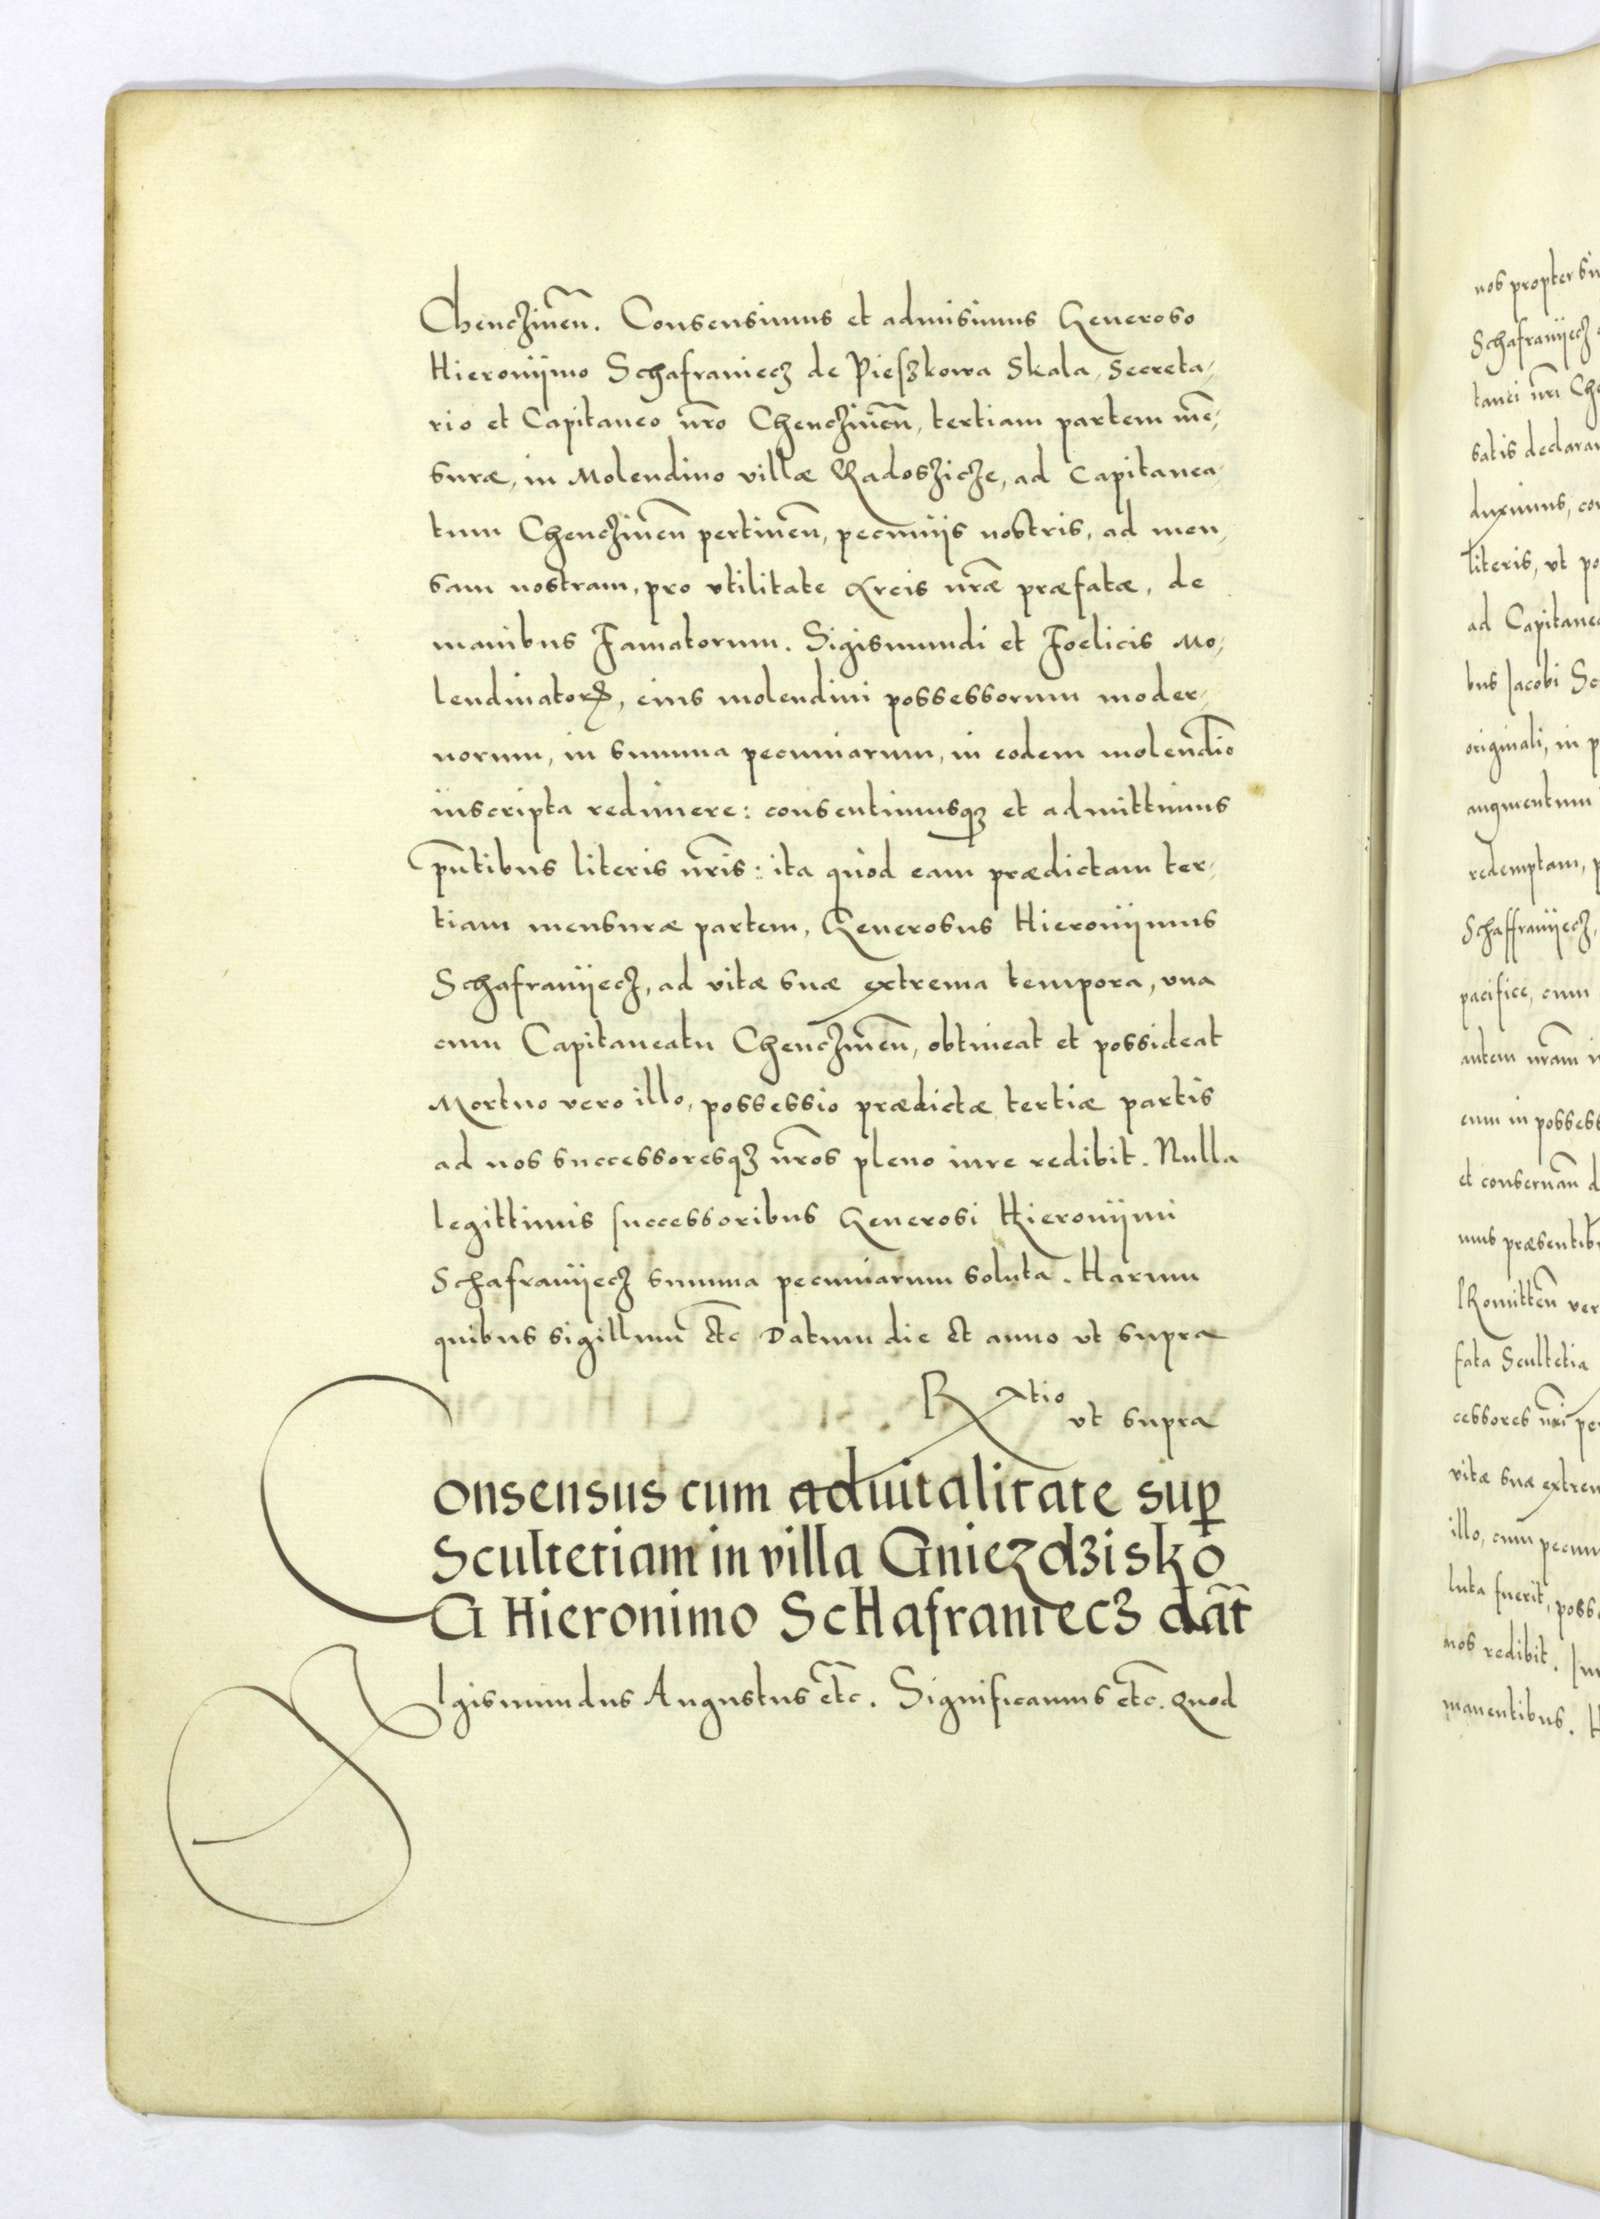 Chenczineñ. Consensimus et admisimus Generoso
Hieronijmo Schafraniecz de Pieſzkowa Skala, Secreta,
rio et Capitaneo nr̃o Chenczineñ, tertiam partem mẽ,
suræ, in Molendino villæ Radoszicze, ad Capitanea,
tum Chenczineñ pertineñ, pecunijs nostris, ad men,
sam nostram, pro vtilitate Arcis nr̃æ præfatæ, de
manibus Famatorum. Sigismundi et Foelicis Mo,
lendinatorꝝ, eius molendini possessorum moder,
norum, in summa pecuniarum, in eodem molendĩo
inscripta redimere: consentimusqꝫ et admittimus
pñtibus literis nr̃is: ita quòd eam prædictam ter,
tiam mensuræ partem, Generosus Hieronijmus
Schafranijecz, ad vitæ suæ extrema tempora, vna
cum Capitaneatu Chenczineñ, obtineat et possideat
Mortuo vero illo, possessio prædictæ tertiæ partis
ad nos successoresqꝫ nr̃os pleno iure redibit. Nulla
legittimis ſuccessoribus Generosi Hieronijmi
Schafranijecz summa pecuniarum soluta. Harum
quibus sigillum etc̃ Datum die et anno vt supra
R̃tio
vt supra
Consensus cum aduitalitate suꝑ
Scultetiam in villa Gniezdzisko
G Hieronimo Schafraniecz dat̃
SIgismundus Augustus etc̃. Significamus etc̃. Quod
nos propter
Schafranijecz
tanei nr̃i
satis
duximus,
literis, vt
ad
bus Jacobi
originali, in
augmentum
redemptam,
Schaffranijecz,
pacifice, cum
autem nr̃am
eum in
et conseruañ
mus
Romitteñ
fata Scultetia
cessores nr̃i
vitæ suæ
illo, cum
luta fuerit,
nos redibit.
manentibus.